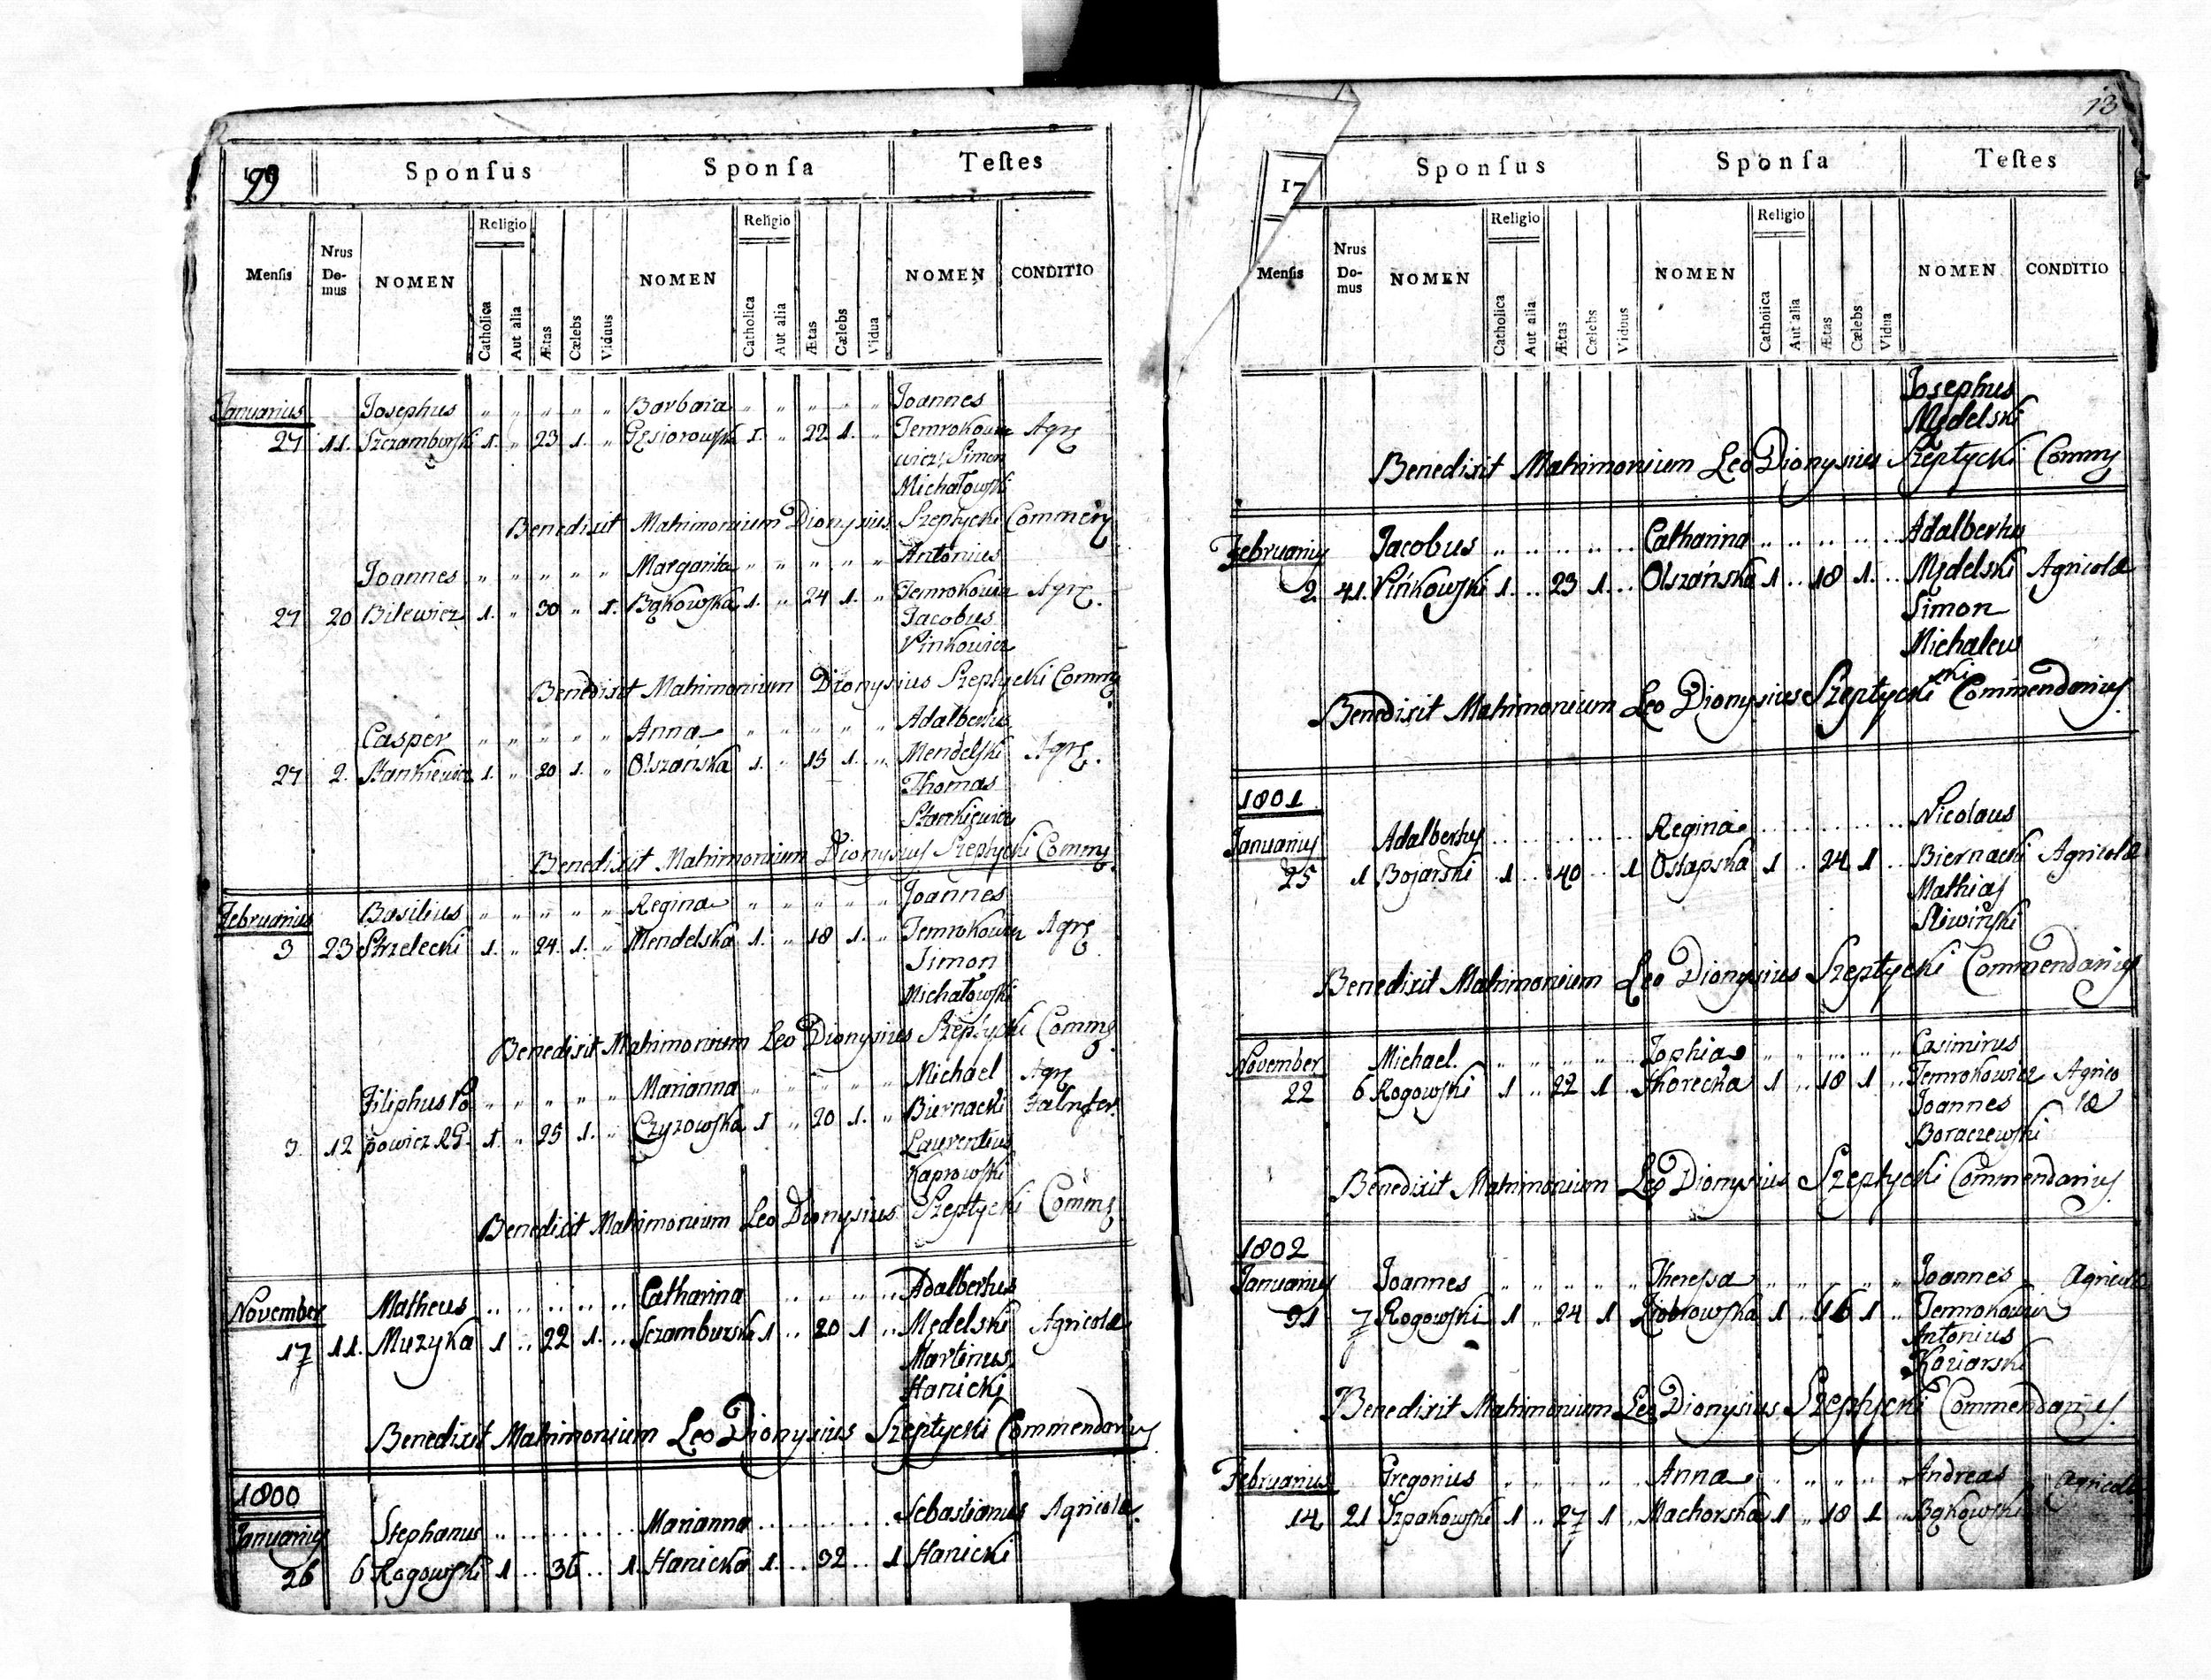 99 Sponsus Sponsa Testes
Religio Religio
Mensis Nrus Domus NOMEN Catholica Aut alia Ætas Cælebs Viduus NOMEN Catholica Aut alia Ætas Cælebs Vidua NOMEN CONDITIO
Januarius Josephus " " " " " Barbara " " " " " Joannes
27 11. Szczamburski 1. " 23 1. " Gęsiorowska 1. " 22 1. " Jemrokowi Agrę
wicz, Simon
Michałowski
Benedixit Matrimonium Dionysius Szeptycki Commen
Joannes " " " " " Margarita " " " " " Antonius
27 20 Bilewicz 1. " 30 " 1. Bąkowska 1. " 24 1. " Jemrokowicz Agrę.
Jacobus
Pinkowicz
Benedixit Matrimonium Dionysius Szeptycki Commę
Casper " " " " " Anna " " " " " Adalbertus
27 2. Stankiewicz 1. " 20 1. " Olszańska 1. " 15 1. " Mendelski Agrę.
Thomas
Stankiewicz
Benedixit Matrimonium Dionysius Szeptycki Commę
Februarius Basilius " " " " " Regina " " " " " Joannes
3 23 Strzelecki 1. " 24. 1. " Mendelska 1. " 18 1. " Jemrokowicz Agrę
Simon
Michałowski
Benedixit Matrimonium Leo Dionysius Szeptycki Commę
Filiphus Po " " " " " Marianna " " " " " Michael Agrę
3 12 powicz RG. 1. " 25 1. " Czyzowska 1 " 20 1. " Biernacki
Laurentius
Kaprowski
Benedixit Matrimonium Leo Dionysius Szeptycki Commę
November Matheus .. .. .. .. .. Catharina .. .. .. .. Adalbertus
17 11. Muzyka 1 .. 22 1. .. Sczamburska 1 .. 20 1 .. Mędelski Agricolæ
Martinus
Hanicki
Benedixit Matrimonium Leo Dionysius Szeptycki Commendarius
1800
Januarius Stephanus .. .. .. .. .. Marianna .. .. .. .. .. Sebastianus Agricolæ.
26 6 Rogowski 1 .. 36 .. 1. Hanicka 1. .. 32 .. 1 Hanicki
13
17 Sponsus Sponsa Testes
Religio Religio
Mensis Nrus Domus NOMEN Catholica Aut alia Ætas Cælebs Viduus NOMEN Catholica Aut alia Ætas Cælebs Vidua NOMEN CONDITIO
Josephus
Mędelski
Benedixit Matrimonium Leo Dionysius Szeptycki Commę
Februarius Jacobus .. .. .. .. .. Catharina .. .. .. .. .. Adalbertus
2. 41. Pińkowski 1. .. 23 1. .. Olszańska 1 .. 18 1. .. Mędelski Agricolæ
Simon
Michalew
ski
Benedixit Matrimonium Leo Dionysius Szeptycki Commendarius.
1801
Januarius Adalbertus .. .. .. .. .. Regina .. .. .. .. .. Nicolaus
25 1 Bojarski 1 .. 40 .. 1 Ostapska 1 .. 24 1 .. Biernacki Agricolæ
Mathias
Sliwiński
Benedixit Matrimonium Leo Dionysius Szeptycki Commendarius
November Michael. " " " " " Sophia " " " " " Casimirus
22 6 Rogowski 1 " 22 1 " Skorecka 1 " 18 1 " Jemrokowicz Agrico
Joannes læ
Boraczewski
Benedixit Matrimonium Leo Dionysius Szeptycki Commendarius.
1802
Januarius Joannes " " " " " Theressa " " " " " Joannes Agricolæ
31 7 Rogowski 1 " 24 1 " Ziobrowska 1 " 16 1 " Jemrokowicz
Antonius
Koziarski
Benedixit Matrimonium Leo Dionysius Szeptycki Commendarius.
Februarius Gregorius " " " " " Anna " " " " " Andreas Agricolæ
14 21 Szpakowski 1 " 27 1 " Machorska 1 " 18 1 " Bąkowski